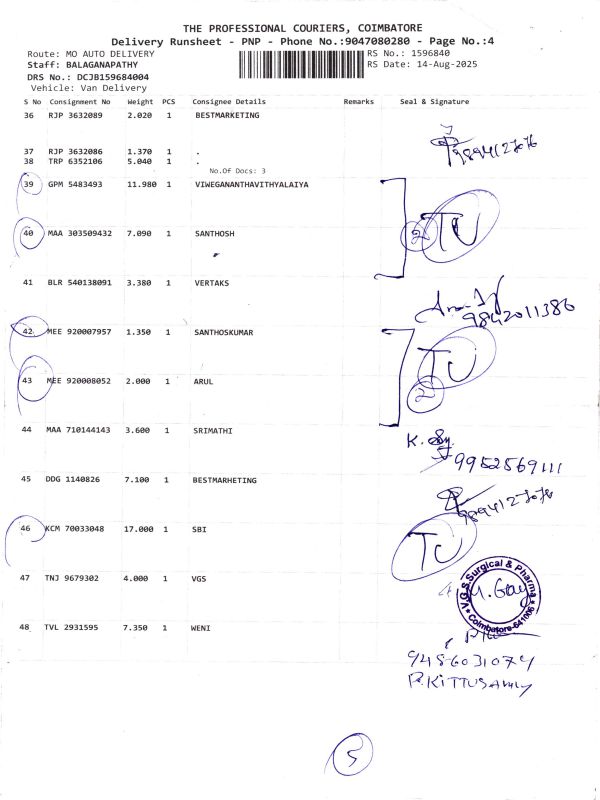 THE PROFESSIONAL COURIERS, COIMBATORE
Delivery Runsheet - PNP - Phone No.:9047080280 - Page No.:4
Route: MO AUTO DELIVERY RS No.: 1596840
Staff: BALAGANAPATHY RS Date: 14-Aug-2025
DRS No.: DCJB159684004
Vehicle: Van Delivery
S No Consignment No Weight PCS Consignee Details Remarks Seal & Signature
36 RJP 3632089 2.020 1 BESTMARKETING
37 RJP 3632086 1.370 1 .
38 TRP 6352106 5.040 1 .
No.Of Docs: 3
39 GPM 5483493 11.980 1 VIWEGANANTHAVITHYALAIYA
2 TU
40 MAA 303509432 7.090 1 SANTHOSH
41 BLR 540138091 3.380 1 VERTAKS
9842011386
42 MEE 920007957 1.350 1 SANTHOSKUMAR
TU
2
43 MEE 920008052 2.000 1 ARUL
44 MAA 710144143 3.600 1 SRIMATHI
9952569111
45 DDG 1140826 7.100 1 BESTMARHETING
46 KCM 70033048 17.000 1 SBI
TU
47 TNJ 9679302 4.000 1 VGS
V.G.S.Surgical & Pharma
Coimbatore-641006
48 TVL 2931595 7.350 1 WENI
9486031074
P.KITTUSAMY
5